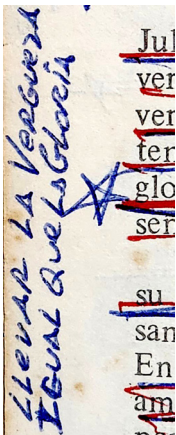 LLEVAR LA VERGÜENZA
IGUAL QUE LA GLORIA
Jul
ver
ver
ten
glo
sen
su
san
En
am